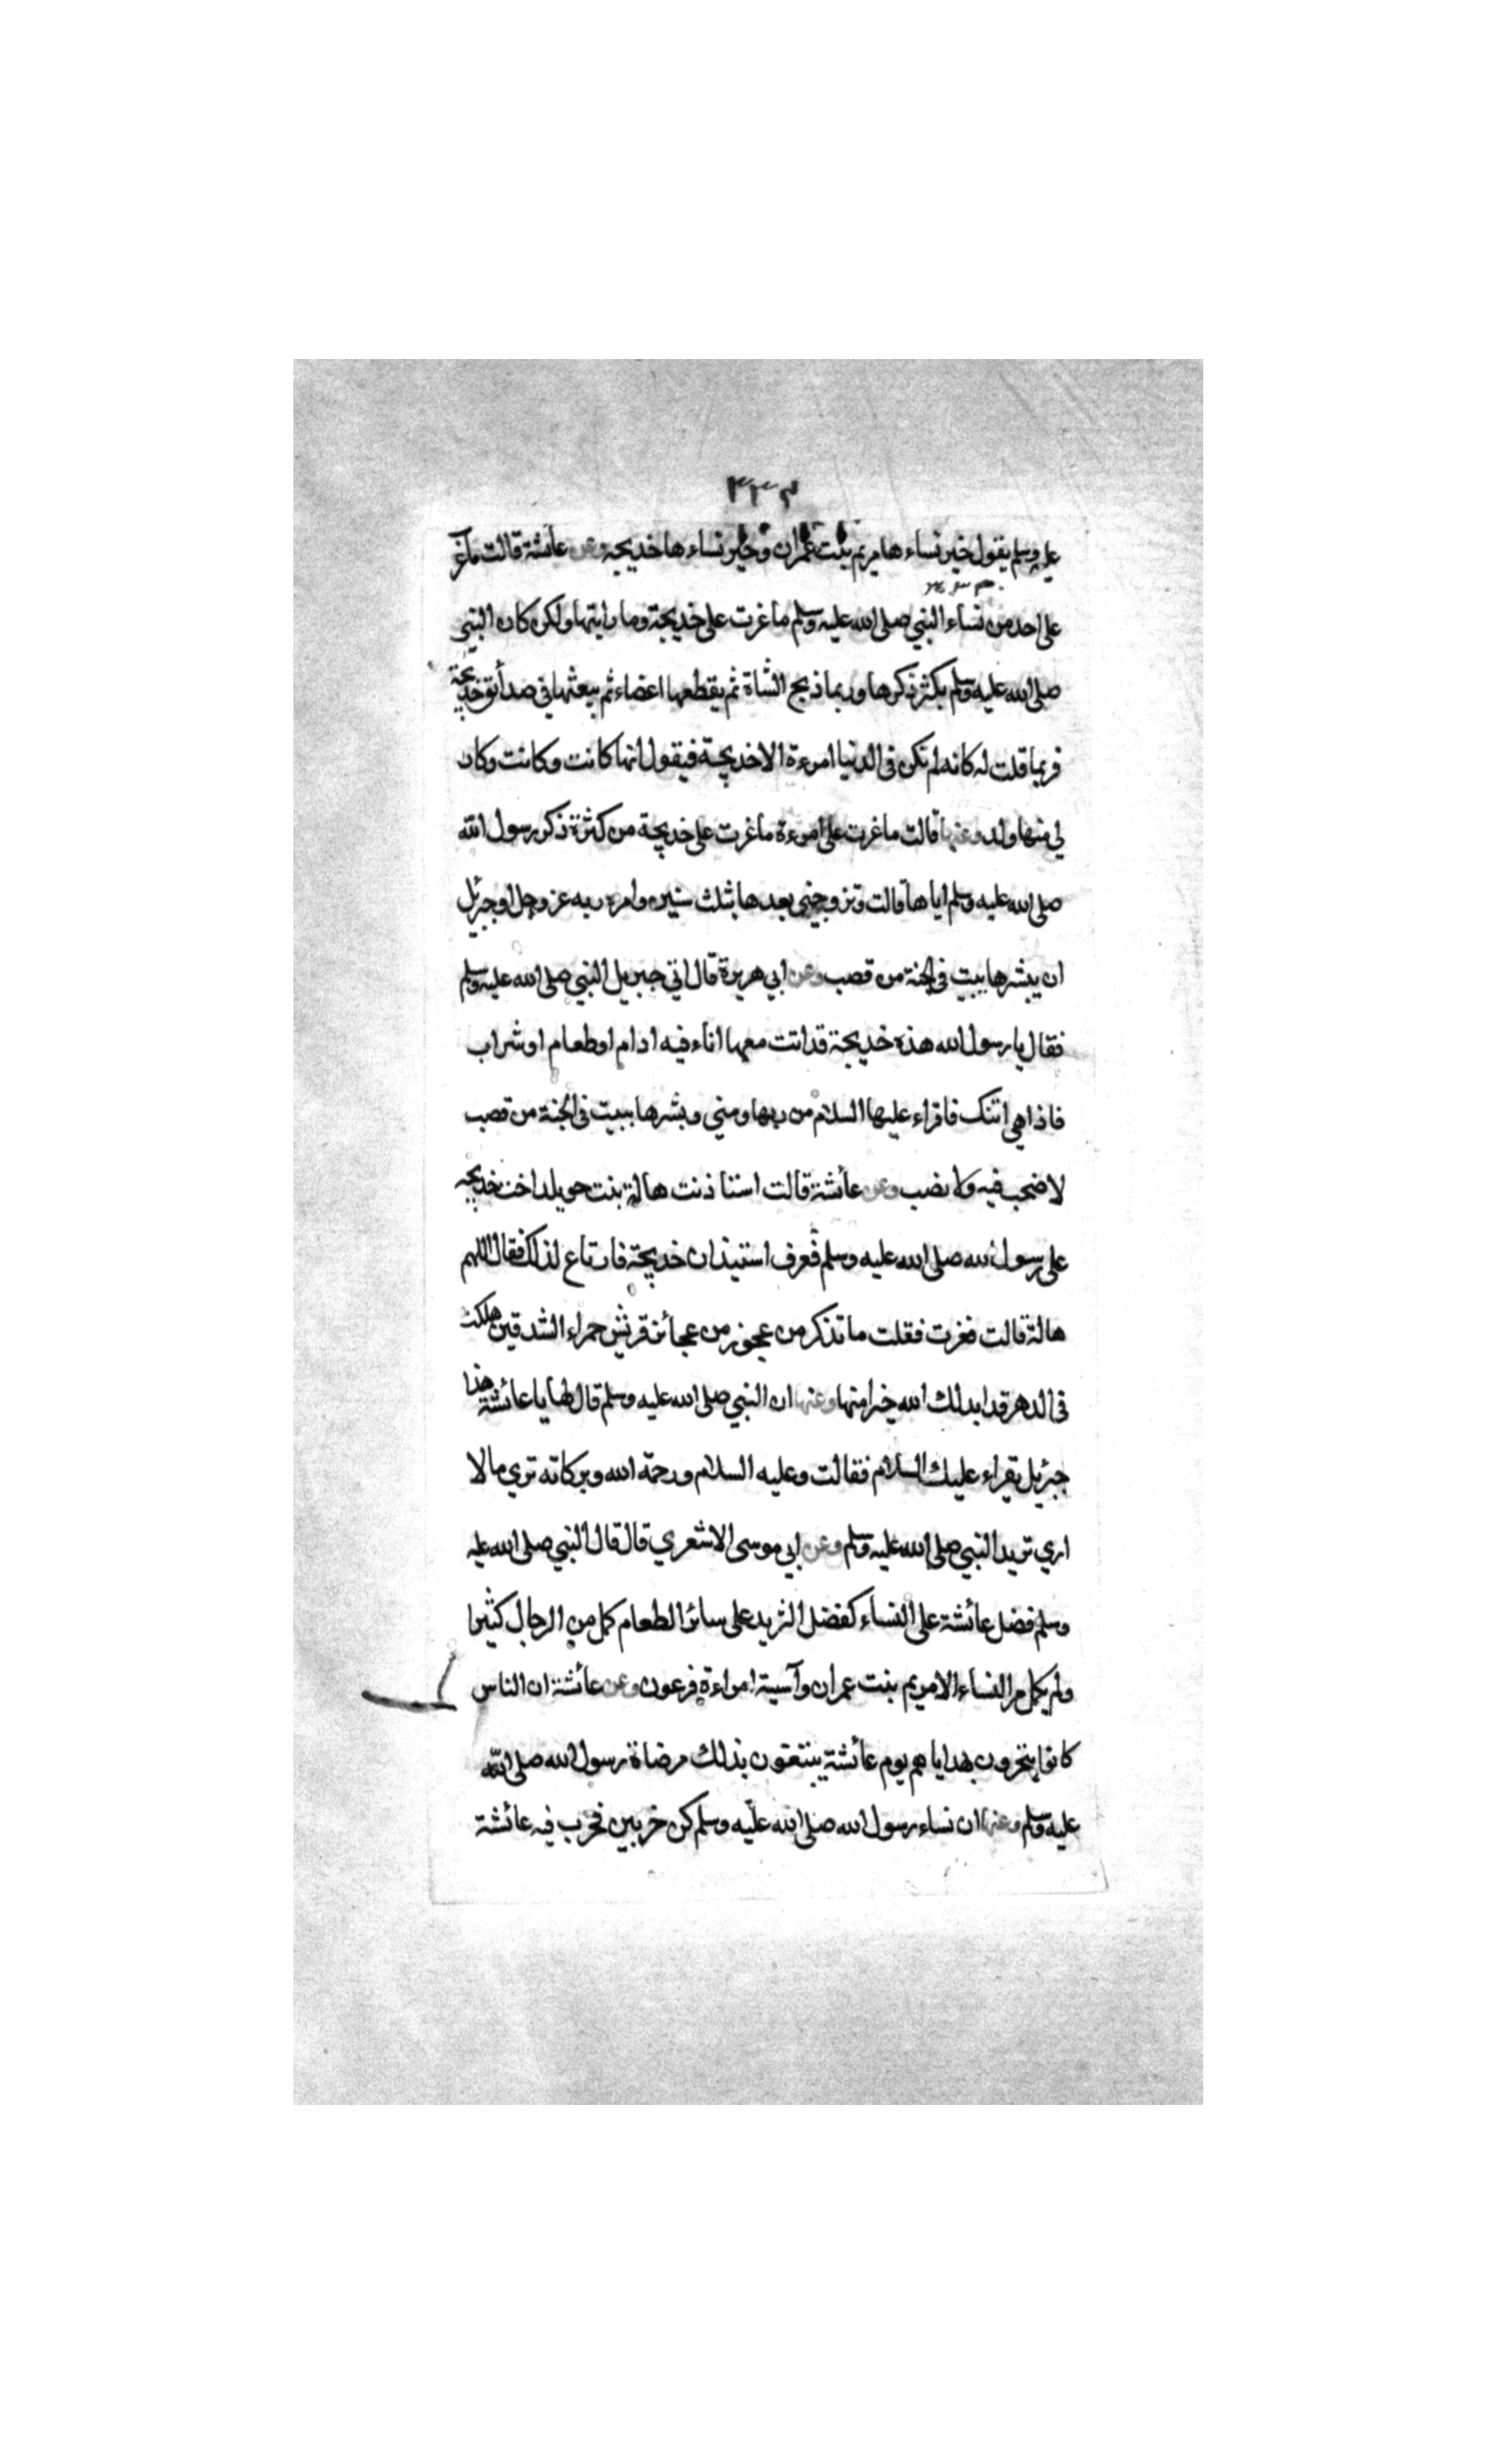 ٣٣٢
عليه وسلم يقول خير نساءها مريم بنت عمران وخير نساءها خديجة وعن عائشة قالت ما غرت
على احد من نساء النبي صلى الله عليه وسلم ما غرت على خديجة وما رايتها ولكن كان النبي
صلى الله عليه وسلم يكثر ذكرها وربما ذبح الشاة ثم يقطعها اعضاء ثم يبعثها في صدائق خديجة
فربما قلت له كانه لم تكن في الدنيا امرءة الا خديجة فيقول انها كانت وكانت وكان
لي منها ولد وعنها قالت ما غرت على امرءة ما غرت على خديجة من كثرة ذكر رسول الله
صلى الله عليه وسلم اياها قالت وتزوجني بعدها بثلث سنين وامره ربه عز وجل او جبرئيل
ان يبشرها ببيت في الجنة من قصب وعن ابي هريرة قال اتي جبريل النبي صلى الله عليه وسلم
فقال يا رسول الله هذه خديجة قد اتت معها اناء فيه ادام او طعام او شراب
فاذا هي اتتك فاقراء عليها السلام من ربها ومني وبشرها ببيت في الجنة من قصب
لا صخب فيه ولا نصب وعن عائشة قالت استاذنت هالة بنت خويلد اخت خديجة
على رسول الله صلى الله عليه وسلم فعرف استيذان خديجة فارتاع لذلك فقال اللهم
هالة قالت فغرت فقلت ما تذكر من عجوز من عجائز قريش حمراء الشدقين هلكت
في الدهر قد ابدلك الله خيرا منها وعنها ان النبي صلى الله عليه وسلم قال لها يا عائشة هذا
جبرئيل يقراء عليك السلام فقالت وعليه السلام ورحمة الله وبركاته تري ما لا
اري تريد النبي صلى الله عليه وسلم وعن ابي موسى الاشعري قال قال النبي صلى الله عليه
وسلم فضل عائشة على النساء كفضل الثريد على سائر الطعام كمل من الرجال كثيرا
ولم يكمل من النساء الا مريم بنت عمران وآسية امراءة فرعون وعن عائشة ان الناس
كانوا يتحرون بهداياهم يوم عائشة يبتغون بذلك مرضاة رسول الله صلى الله
عليه وسلم وعنها ان نساء رسول الله صلى الله عليه وسلم كن حزبين فحزب فيه عائشة